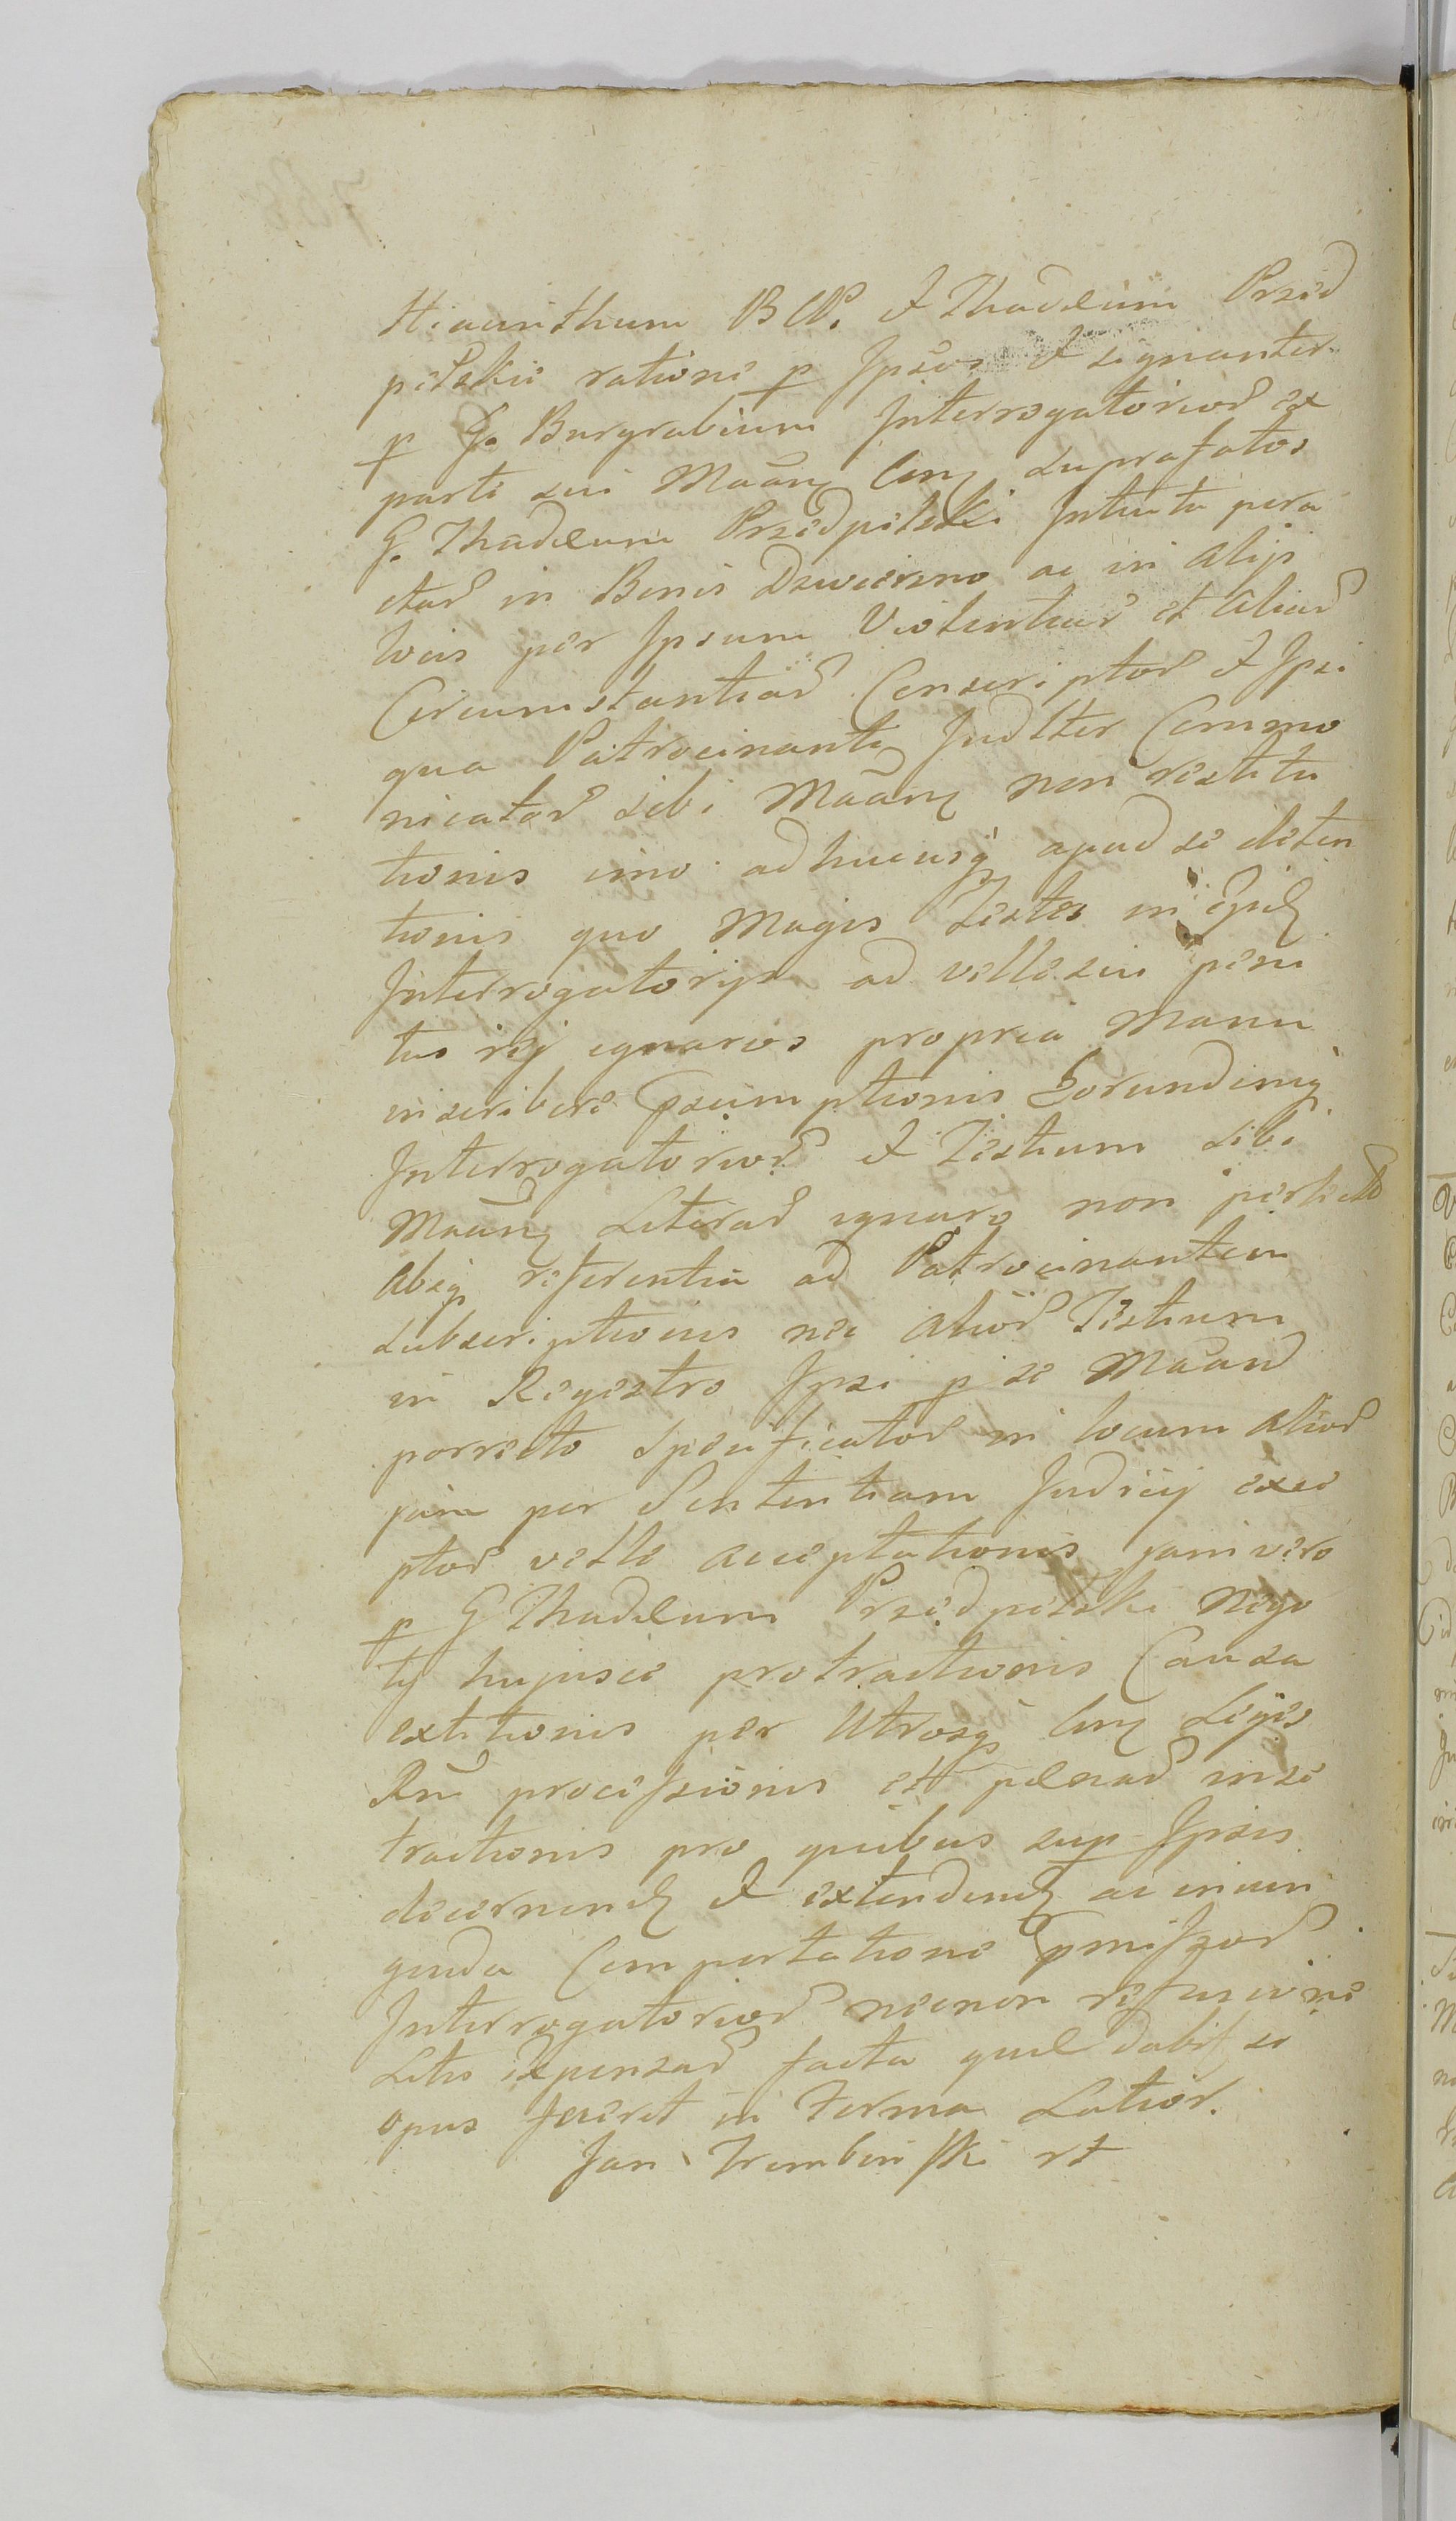 Hiacinthum B W. et Thadeum Przed
pełskie ratione p Ipsos et signanter
p G. Burgrabium Interrogatoriorum ex
parte sui Maãn cum suprafatos
G. Thadeum Przedpelski Intuitu pera
ctar in Bonis Dzwierzno ac in alijs
locis per Ipsum Violentiar et aliar
Circumstantiar Conscriptor et Ipsi
qua Patrocinanti Judlter Commu
nicator sibi Maãn non restitu
tionis imo adhucusq apud se deten
tionis quo Magis Testes in ejusd
Interrogatorijs ad velle sui peni
tus rei ignarios propria Manu
inscribere psumptionis Eorundemq
Interrogatorior et Testium sibi
Maãn Literar ignaro non perlector
absq referentia ad Patrocinantem
subscriptionis nec alior Testium
in Regestro Ipsi p se Maãn
porrecto Specificator in locum alior
jam per Sententiam Judicij exce
ptor velle acceptationis jam vero
p G Thadeum Przedpelski Nego
tij hujusce protractionis Causa
extitionis per Utrosq cum Leges
Rni processionis et paenar in se
tractionis pro quibus sup Ipsis
decernend et extendend ac injun
genda Comportatione pmissor
Interrogatorior necnon refusione
Litis Expensar facta quae dabit se
opus fuerit in Forma Latior.
Jan Trembinski rt